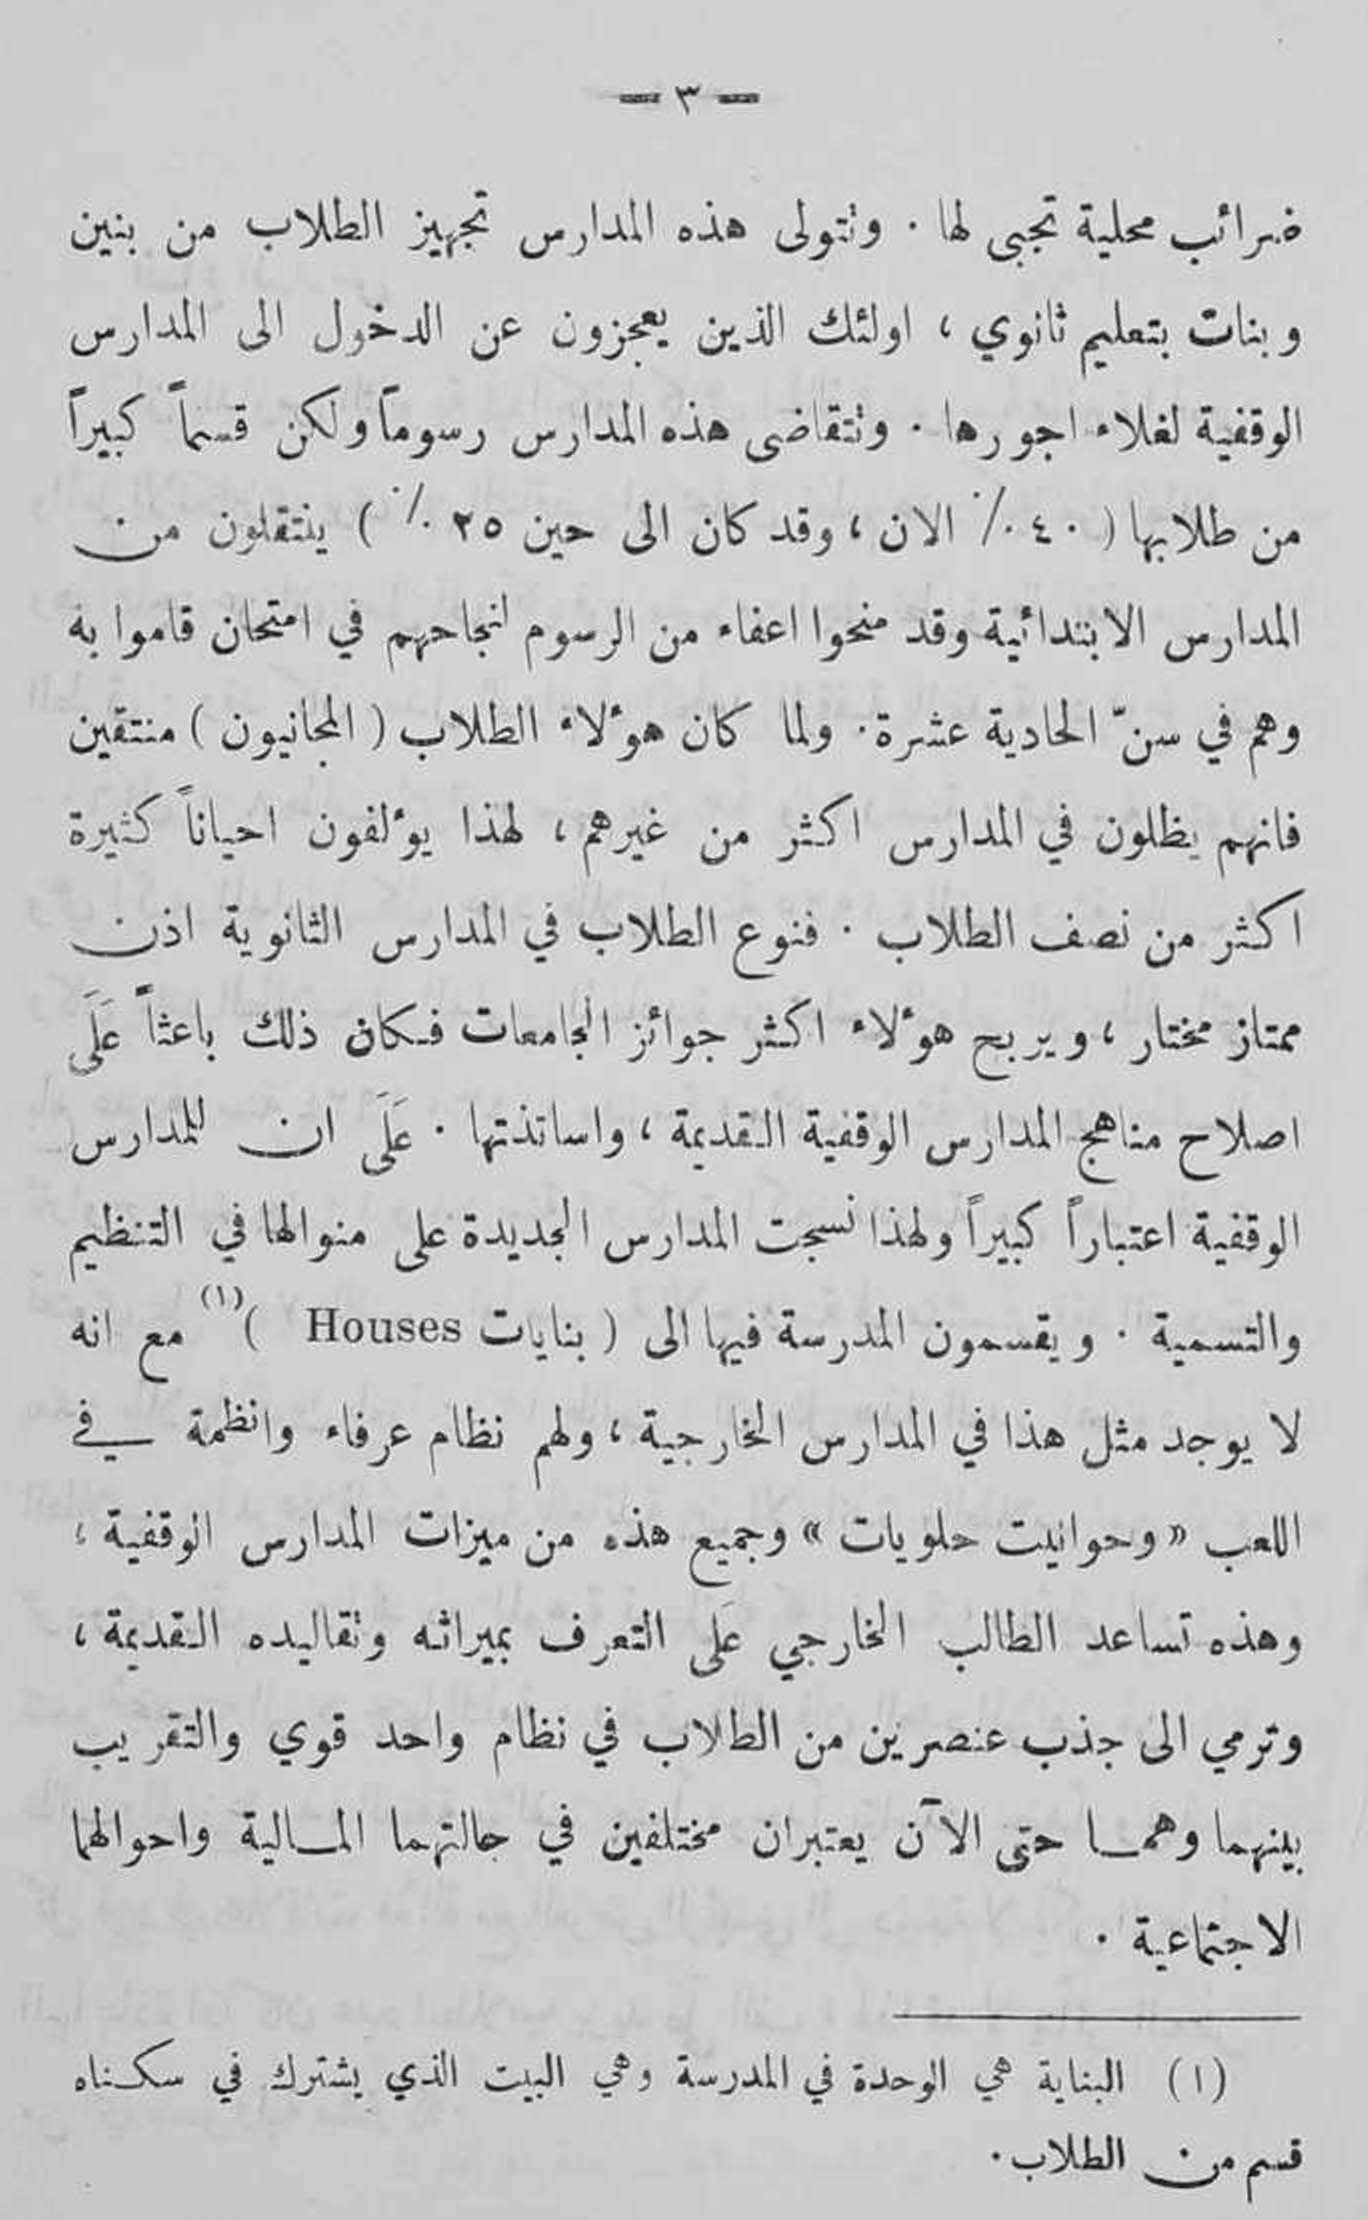 — ٣ —
ضرائب محلية تجبى لها . وتتولى هذه المدارس تجهيز الطلاب من بنين
وبنات بتعليم ثانوي ، اولئك الذين يعجزون عن الدخول الى المدارس
الوقفية لغلاء اجورها . وتتقاضى هذه المدارس رسوماً ولكن قسماً كبيراً
من طلابها ( ٤٠ ٪ الان ، وقد كان الى حين ٢٥ ٪ ) ينتقلون من
المدارس الابتدائية وقد منحوا اعفاء من الرسوم لنجاحهم في امتحان قاموا به
وهم في سنّ الحادية عشرة . ولما كان هؤلاء الطلاب ( المجانيون ) منتقين
فانهم يظلون في المدارس اكثر من غيرهم ، لهذا يؤلفون احياناً كثيرة
اكثر من نصف الطلاب . فنوع الطلاب في المدارس الثانوية اذن
ممتاز مختار ، ويربح هؤلاء اكثر جوائز الجامعات فكان ذلك باعثاً عَلَى
اصلاح مناهج المدارس الوقفية القديمة ، واساتذتها . عَلَى ان للمدارس
الوقفية اعتباراً كبيراً ولهذا نسجت المدارس الجديدة على منوالها في التنظيم
والتسمية . ويقسمون المدرسة فيها الى ( بنايات Houses )(١) مع انه
لا يوجد مثل هذا في المدارس الخارجية ، ولهم نظام عرفاء وانظمة في
اللعب « وحوانيت حلويات » وجميع هذه من ميزات المدارس الوقفية ؛
وهذه تساعد الطالب الخارجي عَلَى التعرف بميراثه وتقاليده القديمة ،
وترمي الى جذب عنصرين من الطلاب في نظام واحد قوي والتقريب
بينهما وهما حتى الآن يعتبران مختلفين في حالتهما المالية واحوالهما
الاجتماعية .
(١) البناية هي الوحدة في المدرسة وهي البيت الذي يشترك في سكناه
قسم من الطلاب .